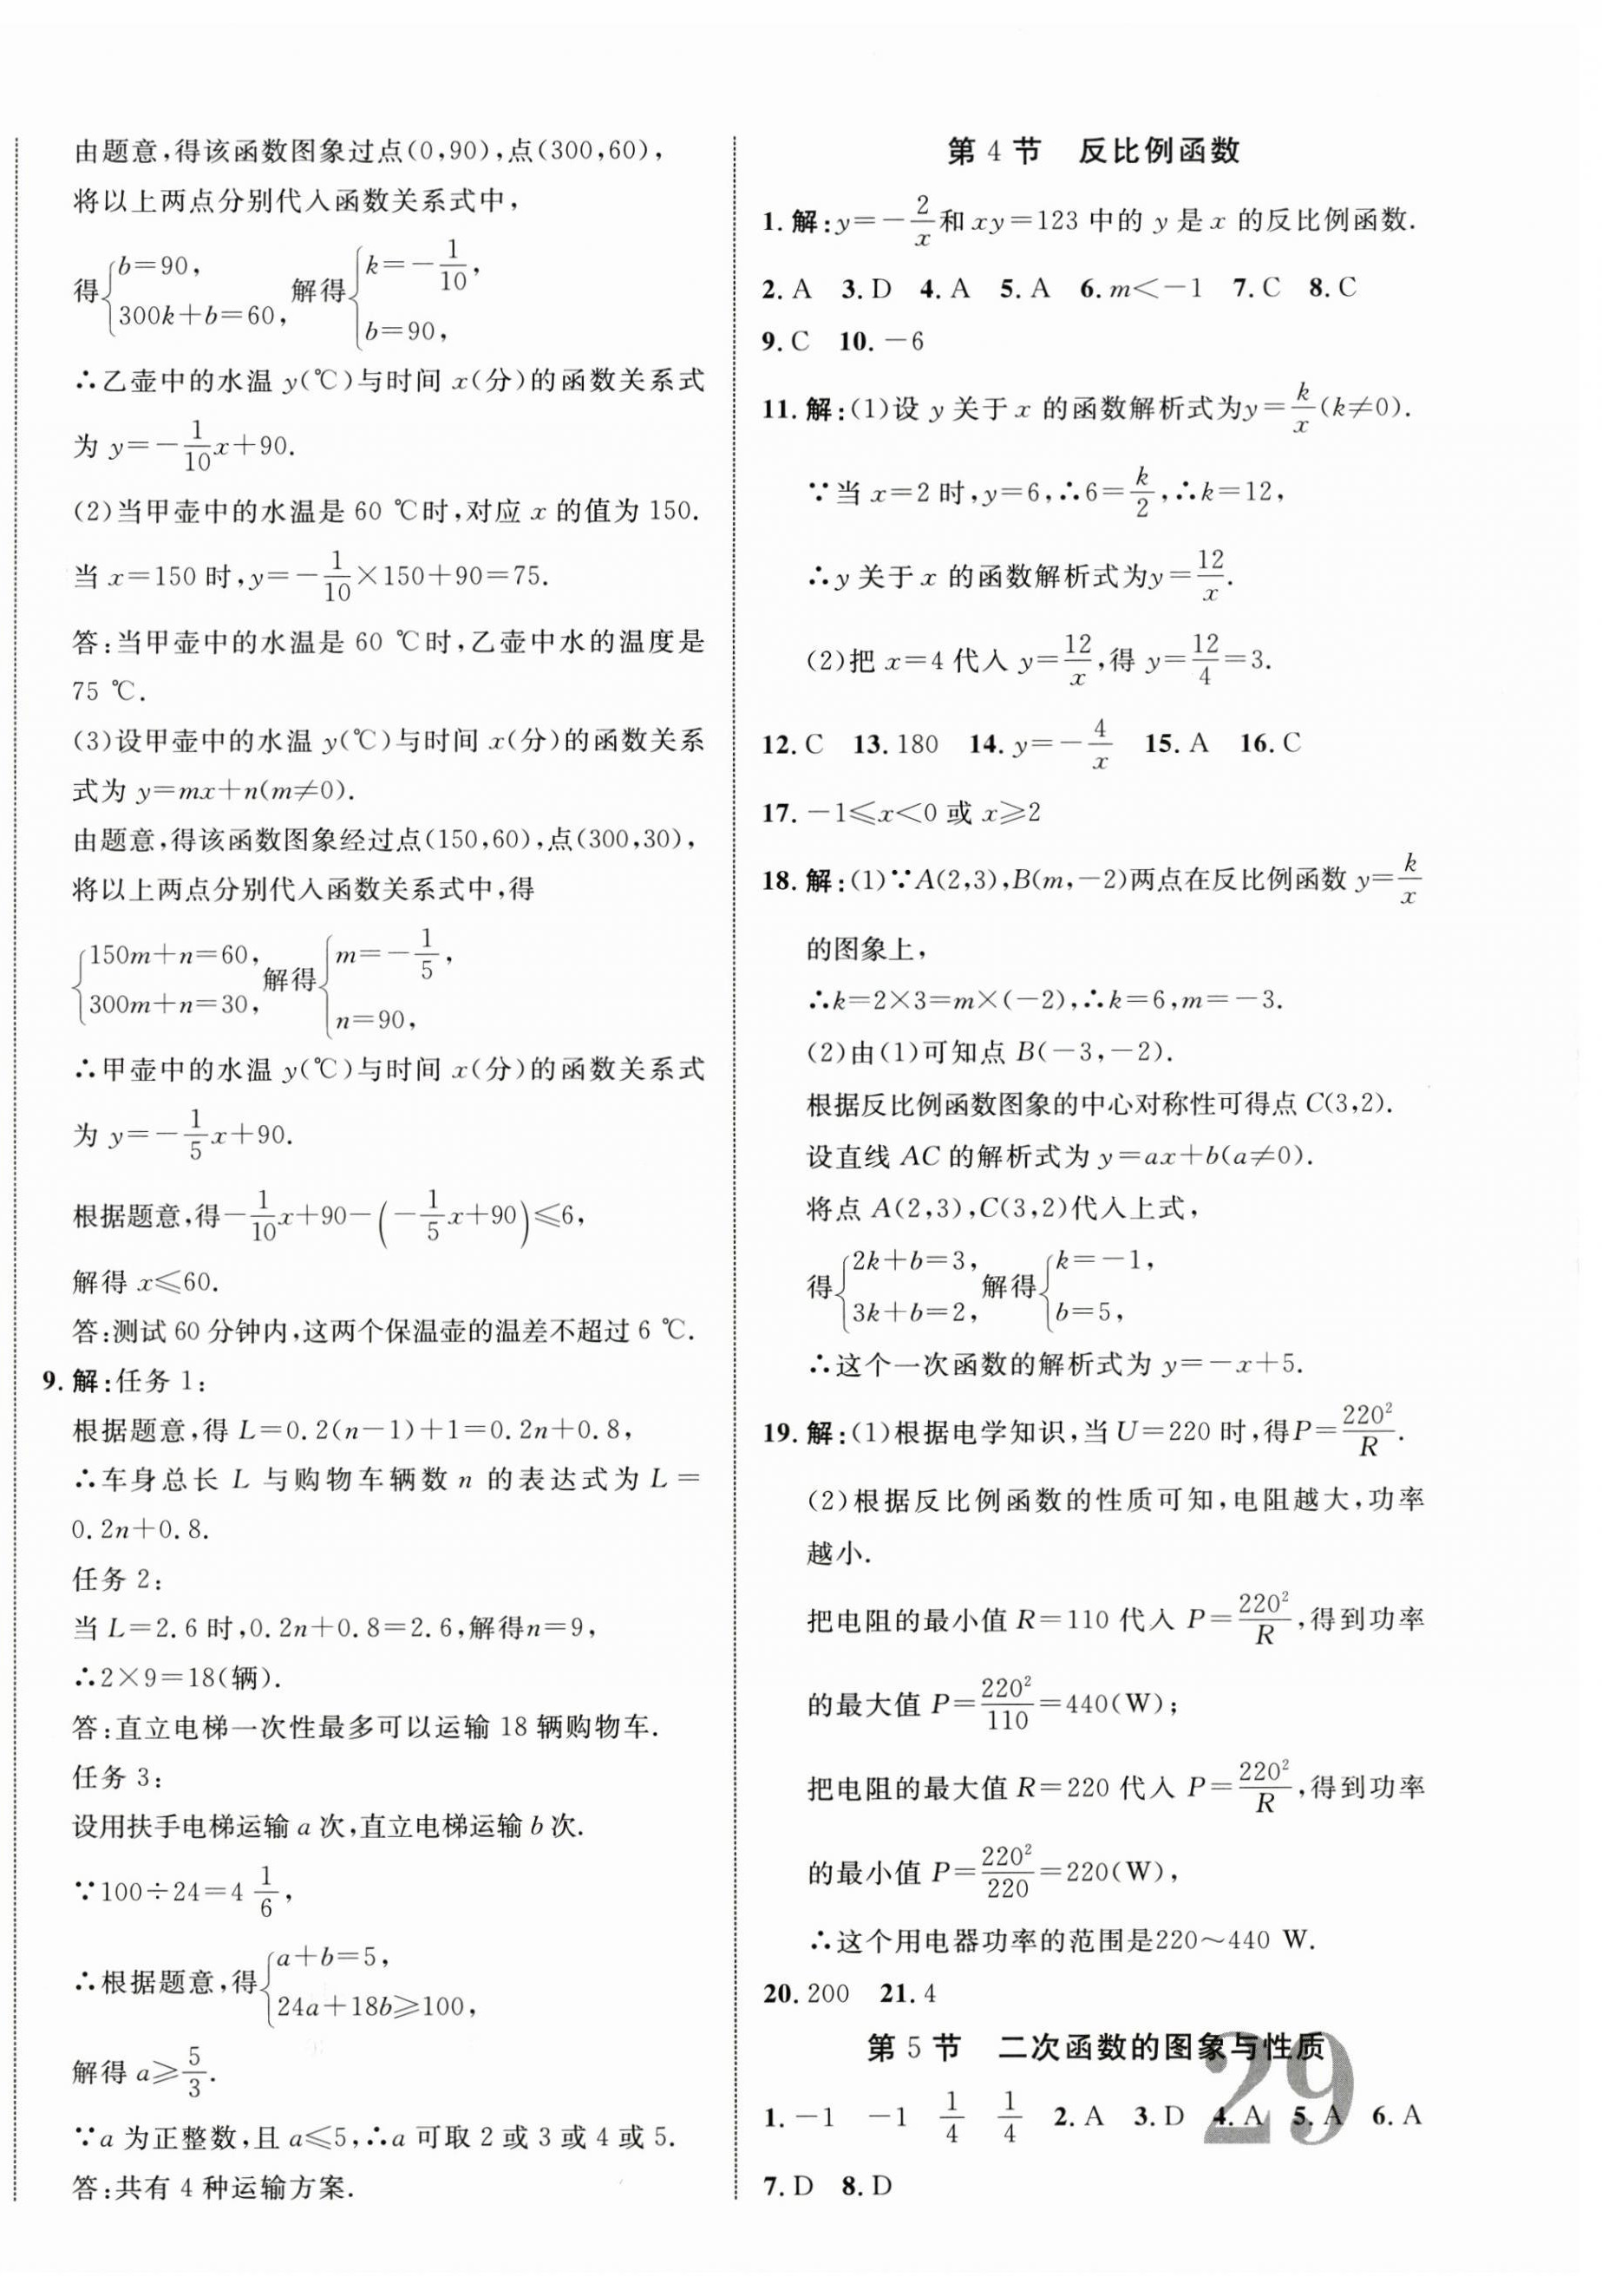 由题意,得该函数图象过点(0,90),点(300,60),
将以上两点分别代入函数关系式中,
得{b=90, 300k+b=60, 解得{k=-1/10, b=90,
∴乙壶中的水温 y(℃)与时间 x(分)的函数关系式
为 y=-1/10x+90.
(2)当甲壶中的水温是 60 ℃时,对应 x 的值为 150.
当 x=150 时,y=-1/10×150+90=75.
答:当甲壶中的水温是 60 ℃时,乙壶中水的温度是
75 ℃.
(3)设甲壶中的水温 y(℃)与时间 x(分)的函数关系
式为 y=mx+n(m≠0).
由题意,得该函数图象经过点(150,60),点(300,30),
将以上两点分别代入函数关系式中,得
{150m+n=60, 300m+n=30, 解得{m=-1/5, n=90,
∴甲壶中的水温 y(℃)与时间 x(分)的函数关系式
为 y=-1/5x+90.
根据题意,得-1/10x+90-(-1/5x+90)≤6,
解得 x≤60.
答:测试 60 分钟内,这两个保温壶的温差不超过 6 ℃.
9. 解:任务 1:
根据题意,得 L=0.2(n-1)+1=0.2n+0.8,
∴车身总长 L 与购物车辆数 n 的表达式为 L=
0.2n+0.8.
任务 2:
当 L=2.6 时,0.2n+0.8=2.6,解得n=9,
∴2×9=18(辆).
答:直立电梯一次性最多可以运输 18 辆购物车.
任务 3:
设用扶手电梯运输 a 次,直立电梯运输 b 次.
∵100÷24=4 1/6,
∴根据题意,得{a+b=5, 24a+18b≥100,
解得 a≥5/3.
∵a 为正整数,且 a≤5,∴a 可取 2 或 3 或 4 或 5.
答:共有 4 种运输方案.
第 4 节 反比例函数
1. 解:y=-2/x和 xy=123 中的 y 是 x 的反比例函数.
2. A 3. D 4. A 5. A 6. m<-1 7. C 8. C
9. C 10. -6
11. 解:(1)设 y 关于 x 的函数解析式为y=k/x(k≠0).
∵当 x=2 时,y=6,∴6=k/2,∴k=12,
∴y 关于 x 的函数解析式为y=12/x.
(2)把 x=4 代入 y=12/x,得 y=12/4=3.
12. C 13. 180 14. y=-4/x 15. A 16. C
17. -1≤x<0 或 x≥2
18. 解:(1)∵A(2,3),B(m,-2)两点在反比例函数 y=k/x
的图象上,
∴k=2×3=m×(-2),∴k=6,m=-3.
(2)由(1)可知点 B(-3,-2).
根据反比例函数图象的中心对称性可得点 C(3,2).
设直线 AC 的解析式为 y=ax+b(a≠0).
将点 A(2,3),C(3,2)代入上式,
得{2k+b=3, 3k+b=2, 解得{k=-1, b=5,
∴这个一次函数的解析式为 y=-x+5.
19. 解:(1)根据电学知识,当 U=220 时,得P=220²/R.
(2)根据反比例函数的性质可知,电阻越大,功率
越小.
把电阻的最小值 R=110 代入 P=220²/R,得到功率
的最大值 P=220²/110=440(W);
把电阻的最大值 R=220 代入 P=220²/R,得到功率
的最小值 P=220²/220=220(W),
∴这个用电器功率的范围是220~440 W.
20. 200 21. 4
第 5 节 二次函数的图象与性质
1. -1 -1 1/4 1/4 2. A 3. D 4. A 5. A 6. A
7. D 8. D
29